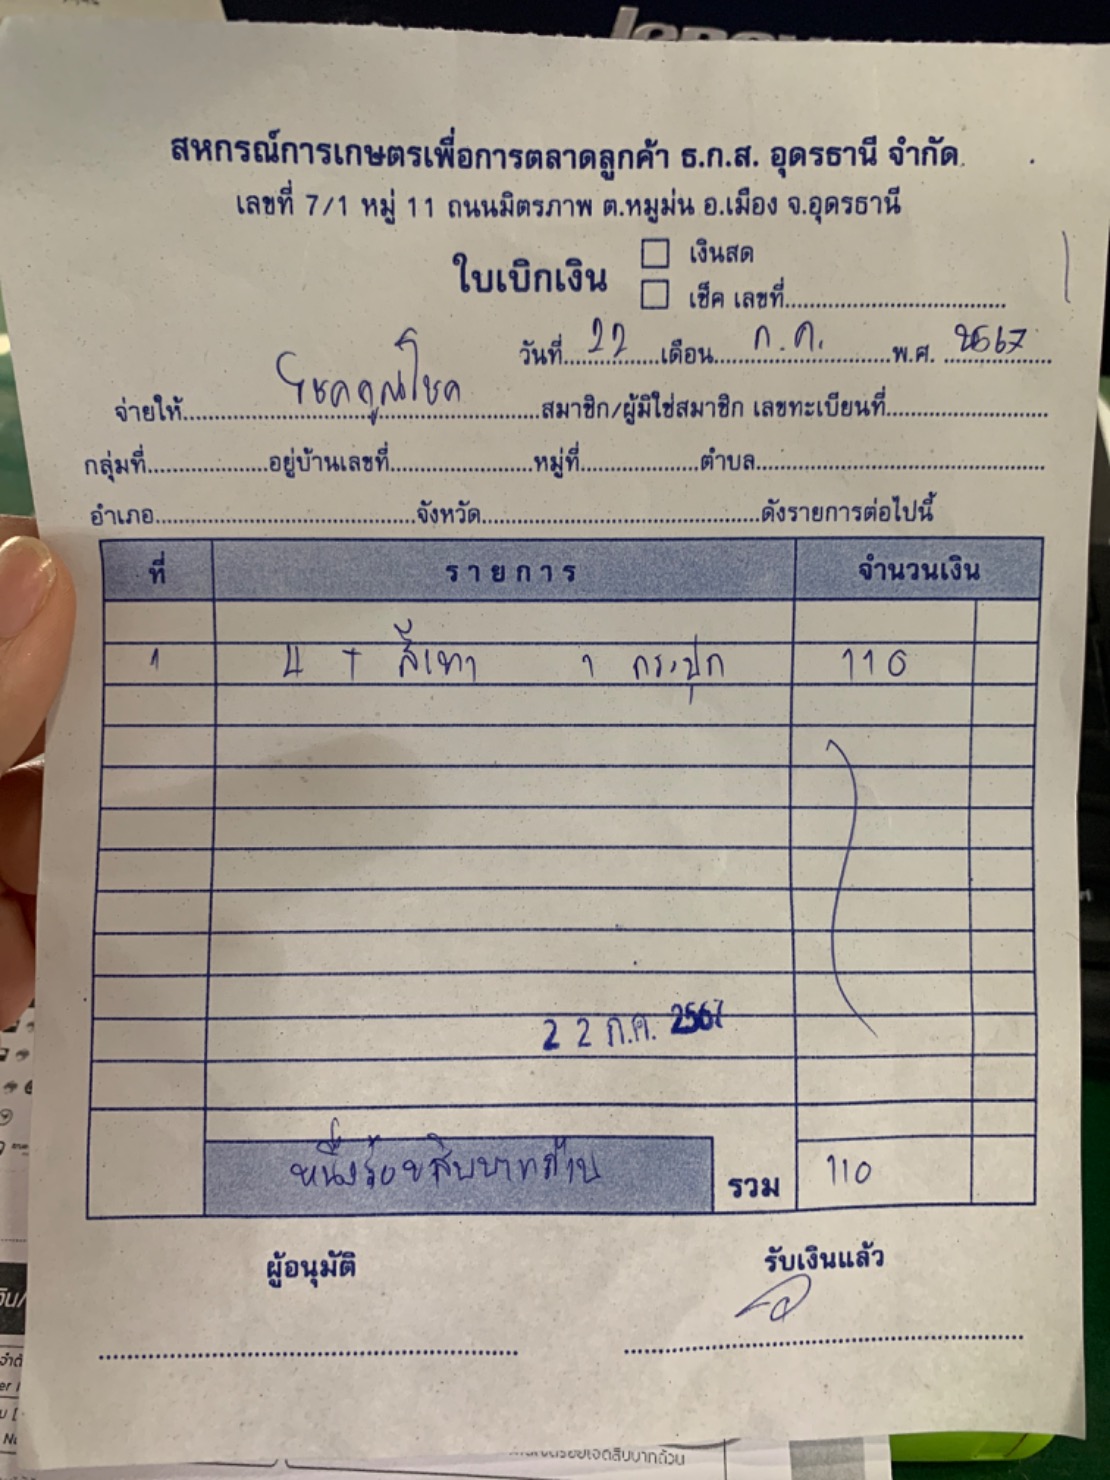 lenovo
สหกรณ์การเกษตรเพื่อการตลาดลูกค้า ธ.ก.ส. อุดรธานี จำกัด
เลขที่ 7/1 หมู่ 11 ถนนมิตรภาพ ต.หมูม่น อ.เมือง จ.อุดรธานี
ใบเบิกเงิน
เงินสด
เช็ค เลขที่
วันที่ 22 เดือน ก.ค. พ.ศ. 2567
จ่ายให้ โชคคูณโชค สมาชิก/ผู้มิใช่สมาชิก เลขทะเบียนที่
กลุ่มที่ อยู่บ้านเลขที่ หมู่ที่ ตำบล
อำเภอ จังหวัด ดังรายการต่อไปนี้
ที่ รายการ จำนวนเงิน
1 สีเทา 1 กระปุก 110
22 ก.ค. 2567
หนึ่งร้อยสิบบาทถ้วน รวม 110
ผู้อนุมัติ รับเงินแล้ว